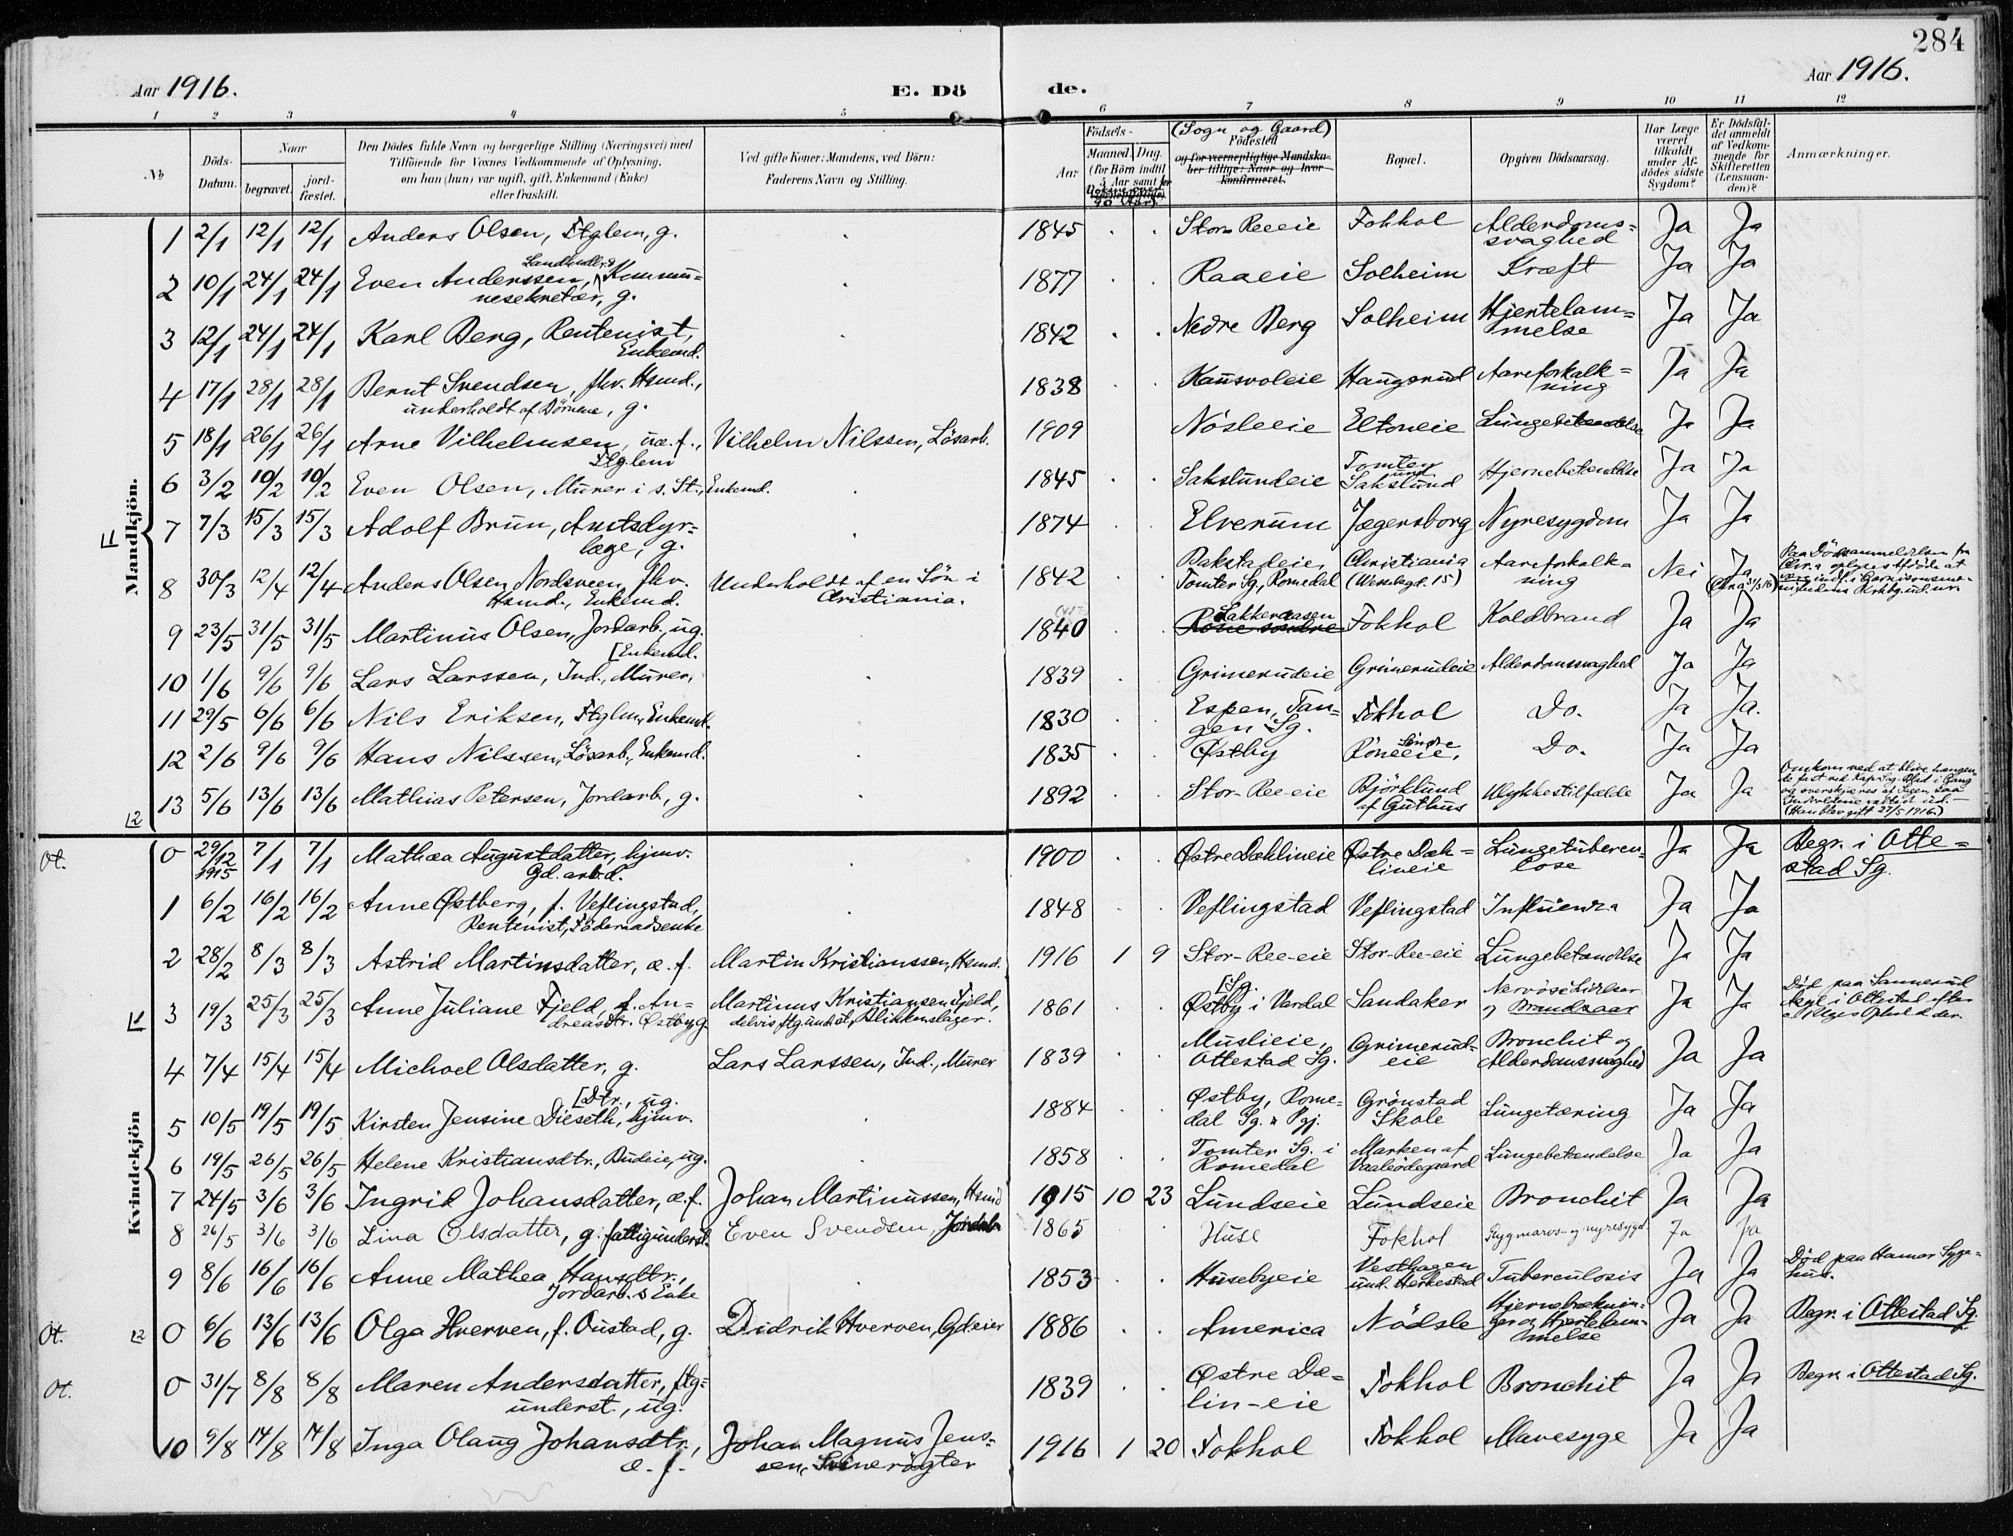 284
Aar 1916. E. Dö de. Aar 1916.
1 2 3 4 5 6 7 8 9 10 11 12
№ Döds-Datum. Naar begravet. jord-fæstet. Den Dödes fulde Navn og borgerlige Stilling (Næringsvei) med Tilföiende for Voxnes Vedkommende af Oplysning, om han (hun) var ugift, gift, Enkemand (Enke) eller fraskilt. Ved gifte Koner: Mandens, ved Börn: Faderens Navn og Stilling. Födsels- Aar Maaned. Dag. (for Börn indtil Aar samt for (Sogn og Gaard) Födested og for værnepligtige Mandska-ber tillige: Naar og hvor konfirmeret. Bopæl. Opgiven Dödsaarsag. Har Læge været tilkaldt under Af-dödes sidste Sygdom? Er Dödsfal-det anmeldt af Vedkom-mende for Skifteretten (Lensman-den)? Anmærkninger.
Mandkjön.
1 2/1 12/1 12/1 Anders Olsen, Flglem, g. 1845 Stor-Reeeie Fokhol Alderdoms=svaghed Ja Ja
2 10/1 24/1 24/1 Even Anderssen, Landhdlr. Kommu=nesekretær, g. 1877 Raaeie Solheim Kræft Ja Ja
3 12/1 24/1 24/1 Karl Berg, Rentenist, Enkemd. 1842 Nedre Berg Solheim Hjertelam=melse Ja Ja
4 17/1 28/1 28/1 Bernt Svendsen, fhv. Hsmd., underholdt af Börnene, g. 1838 Kausvoleie Haugsrud Aareforkalk=ning Ja Ja
5 18/1 26/1 26/1 Arne Vilhelmsen, uæ. f., Vilhelm Nilssen, Lösarb. 1909 Nösleeie Eltoneie Lungebetændelse Ja Ja
6 3/2 10/2 10/2 Even Olsen, Flglem Murer i s. St., Enkemd. 1845 Sakslundeie Tomten und. Sakslund Hjernebetændelse Ja Ja
7 7/3 15/3 15/3 Adolf Brun, Amtsdyr=læge, g. 1874 Elverum Jægersborg Nyresygdom Ja Ja
8 30/3 12/4 12/4 Anders Olsen Nordsveen, fhv. Hsmd., Enkemd. Underholdt af en Sön i Christiania. 1842 Bakstadeie, Tomter Sg., Romedal Christiania Aareforkalk=ning Nei Ja
9 23/5 31/5 31/5 Martinus Olsen, Jordarb., ug. 1840 Lakkeraasen Röne söndre Fokhol Koldbrand Ja Ja
10 1/6 9/6 9/6 Lars Larssen, Ind., Murer, [Enkemd. 1839 Grimerudeie Grimerudeie Alderdomssvaghed Ja Ja
11 29/5 6/6 6/6 Nils Eriksen, Flglm, Enkemd. 1830 Espen, Tan=gen Sg. Fokhol Do. Ja Ja.
12 2/6 9/6 9/6 Hans Nilssen, Lösarb., Enkemd. 1835 Østby Söndre Röneeie, Do. Ja Ja
13 5/6 13/6 13/6 Mathias Petersen, Jordarb., g. 1892 Stor-Ree-eie Björklund af Guthus Ulykkestilfælde Ja Ja (Han blev gift 27/5 1916.)
Kvindekjön
Ot. 0 29/12 1915 7/1 7/1 Mathea Augustdatter, hjmv. Gd. arb. d. 1900 Østre Dæklineie Østre Dæk=lineie Lungetuberku=lose Ja Ja Begr. i Otte=stad Sg.
1 6/2 16/2 16/2 Anne Østberg, f. Veflingstad, Rentenist, Föderaadsenke 1848 Veflingstad Veflingstad Influenza Ja Ja
2 28/2 8/3 8/3 Astrid Martinsdatter, æ. f. Martin Kristianssen, Hsmd. 1916 1 9 Stor-Ree-eie Stor-Ree-eie Lungebetændelse Ja Ja
3 19/3 25/3 25/3 Anne Juliane Fjeld, f. An=dreasdtr. Østby g. Martinus Kristiansen Fjeld, Blikkenslager. 1861 [Sg. Østby i Vardal Sandaker Nervöse Lidelser og Brandsaar Ja Ja Död paa Sannerud
4 7/4 15/4 15/4 Michoel Olsdatter, g. Lars Larssen, Ind., Murer 1839 Muslieie, Ottestad Sg. Grimerud-eie Bronchit og Alderdomssvaghed Ja Ja
5 10/5 19/5 19/5 Kirsten Jensine Dieseth, [Dtr., ug. hjmv. 1884 Østby, Rome=dal Sg. & Pgj. Grönstad Skole Lungetæring Ja Ja
6 19/5 26/5 26/5 Helene Kristiansdtr., Budeie, ug. 1858 Tomter Sg. i Romedal Marken af Vaaleödegaard Lungebetændelse Ja Ja
7 24/5 3/6 3/6 Ingrid Johansdatter, æ. f. Johan Martinussen, Hsmd 1915 10 23 Lundseie Lundseie Bronchit Ja Ja
8 26/5 3/6 3/6 Lina Olsdatter, g. fattigunderst. Even Svendsen, Jordab. 1865 Huse Fokhol Rygmarvs- og nyresygd. Ja Ja
9 8/6 16/6 16/6 Anne Mathea Hansdtr., Jordarb.s Enke 1853 Husebyeie Vesthagen und. Herkestad Tuberculosis Ja Ja Död paa Hamar Syge=hus.
Ot. 0 6/6 13/6 13/6 Olga Hverven, f. Oustad, g. Didrik Hverven, Gd.eier 1886 America Nödsle Hjerneblöknin=ger og Hjertelam=melse Ja Ja Begr. i Ottestad Sg.
Ot. 0 31/7 8/8 8/8 Maren Andersdatter, ftg=underst., ug. 1839 Østre Dæ=lin-eie Fokhol Bronchit Ja Ja Begr. i Ottestad Sg.
10 9/8 14/8 14/8 Inga Olaug Johansdtr., æ. f. Johan Magnus Jens=sen, Svinerögter 1916 1 20 Fokhol Fokhol Mavesyge Ja Ja